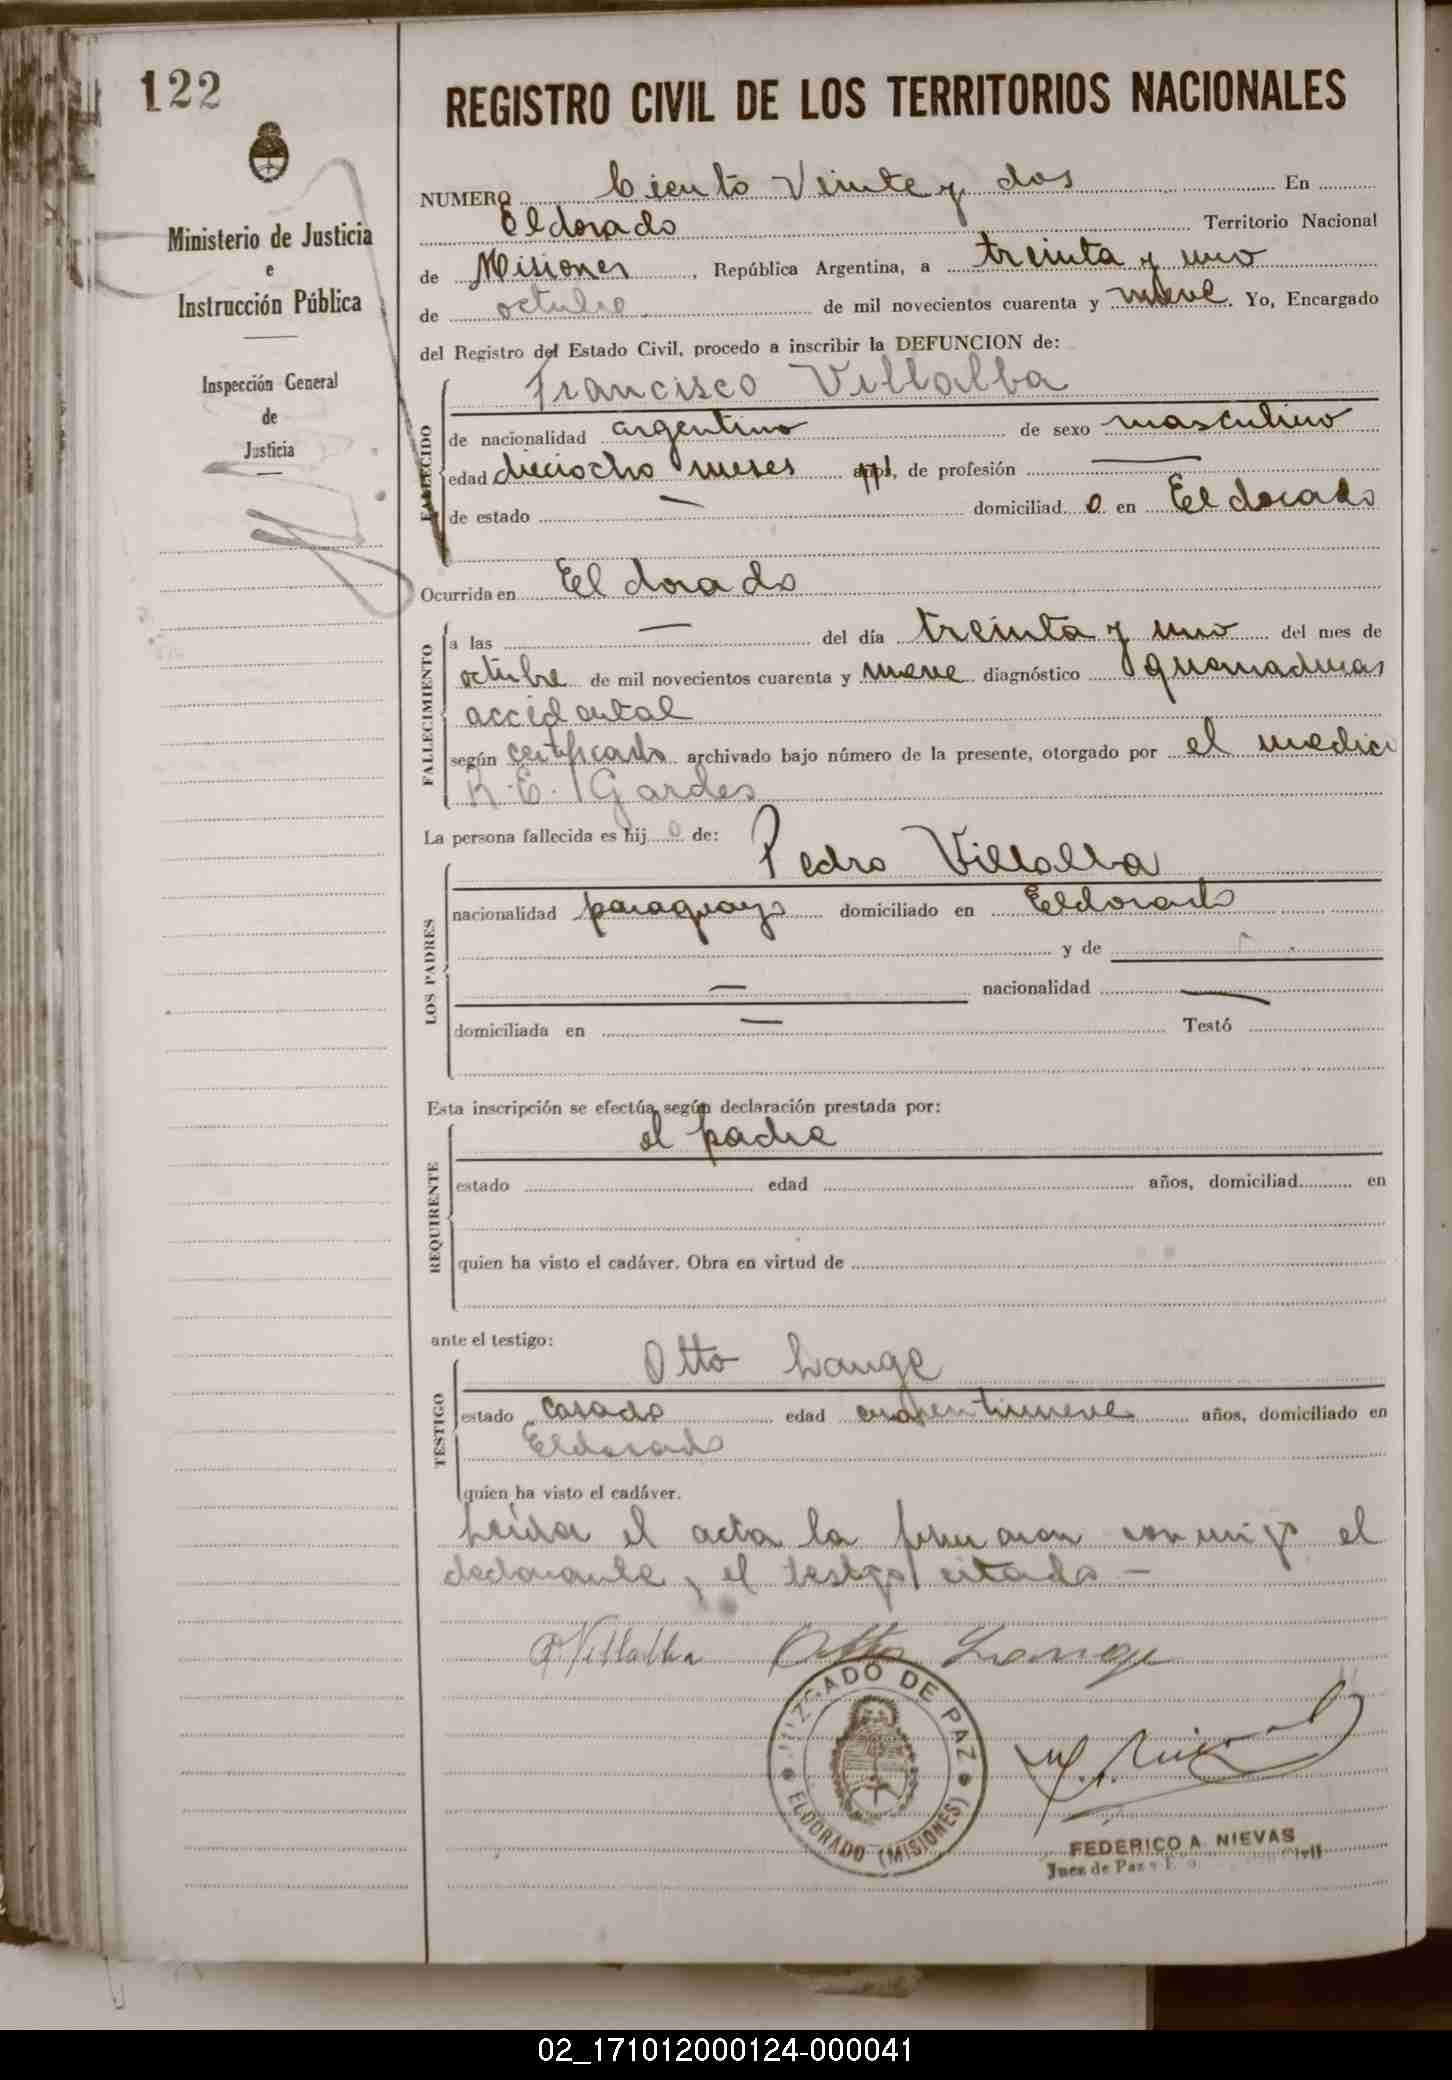 122
REGISTRO CIVIL DE LOS TERRITORIOS NACIONALES
Ministerio de Justicia
e
Instrucción Pública
Inspección General
de
Justicia
NUMERO Ciento Veinte y dos En
Eldorado Territorio Nacional
de Misiones, República Argentina, a treinta y uno
de octubre de mil novecientos cuarenta y nueve. Yo, Encargado
del Registro del Estado Civil, procedo a inscribir la DEFUNCION de:
FALLECIDO
Francisco Villalba
de nacionalidad argentino de sexo masculino
edad dieciocho meses años, de profesión —
de estado — domiciliad o en Eldorado
Ocurrida en Eldorado
FALLECIMIENTO
a las — del día treinta y uno del mes de
octubre de mil novecientos cuarenta y nueve diagnóstico quemaduras
accidental
según certificado archivado bajo número de la presente, otorgado por el medico
R.E. Gardes
La persona fallecida es hij o de:
LOS PADRES
Pedro Villalba
nacionalidad paraguayo domiciliado en Eldorado
y de
— nacionalidad —
domiciliada en — Testó
Esta inscripción se efectúa según declaración prestada por:
REQUIRENTE
el padre
estado edad años, domiciliad en
quien ha visto el cadáver. Obra en virtud de
ante el testigo:
TESTIGO
Otto Lange
estado casado edad años, domiciliado en
Eldorado
quien ha visto el cadáver.
Leída el acta la firmaron conmigo el
declarante y el testigo citado —
P Villalba Otto Lange
JUZGADO DE PAZ
ELDORADO (MISIONES)
FEDERICO A. NIEVAS
Juez de Paz y E Civil
02_171012000124-000041